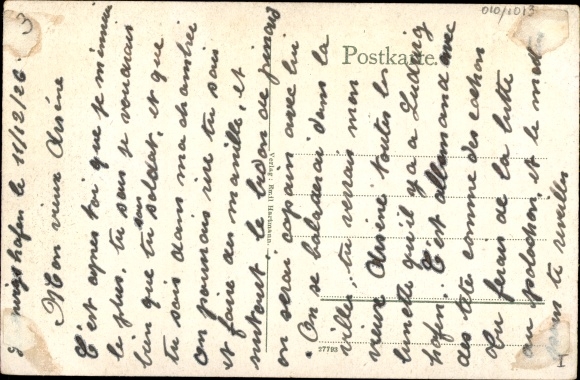 3
010/1013
Postkarte
Verlag: Emil Hartmann,
27793
I
hafen le 11/12/26.
Mon vieux Arsène
C'est apres toi que je m'ennuie
le plus, tu sais je voudrais
bien que tu sois soldat, et que
tu sois dans ma chambrée
on pourrais rire tu sais
et faire des manille, et
surtout le bidon de pinard
on serai copain avec lui
. On se baladerai dans la
ville, tu verrais mon
vieux Arsène toutes les
binette qu'il y a a Ludwig
hafen. C'est allemand avec
des tête comme des cochon
du ferais de la lutte
au polochon, et le mat
tu reveilles